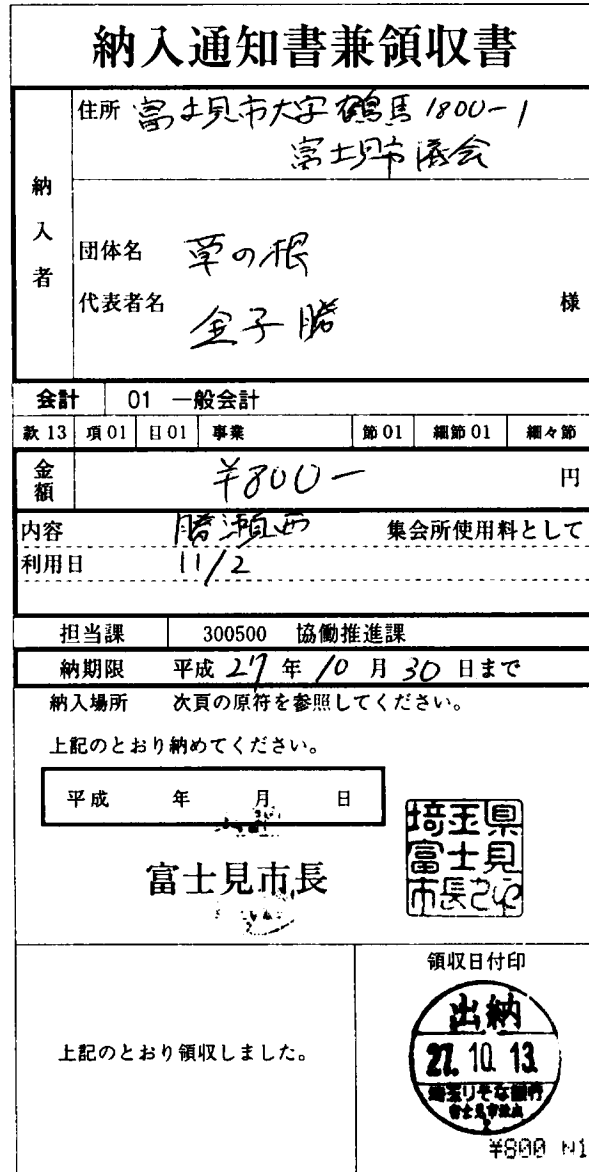 納入通知書兼領収書
住所 富士見市大字鶴馬1800-1
富士見市議会
納入者
団体名 草の根
代表者名 金子勝 様
会計 01 一般会計
款13 項01 目01 事業 節01 細節01 細々節
金額 ¥800- 円
内容 勝瀬西 集会所使用料として
利用日 11/2
担当課 300500 協働推進課
納期限 平成27年10月30日まで
納入場所 次頁の原符を参照してください。
上記のとおり納めてください。
平成 年 月 日
富士見市長
埼玉県
富士見
市長之印
領収日付印
上記のとおり領収しました。
出納
27.10.13
埼玉りそな銀行
¥800 N1